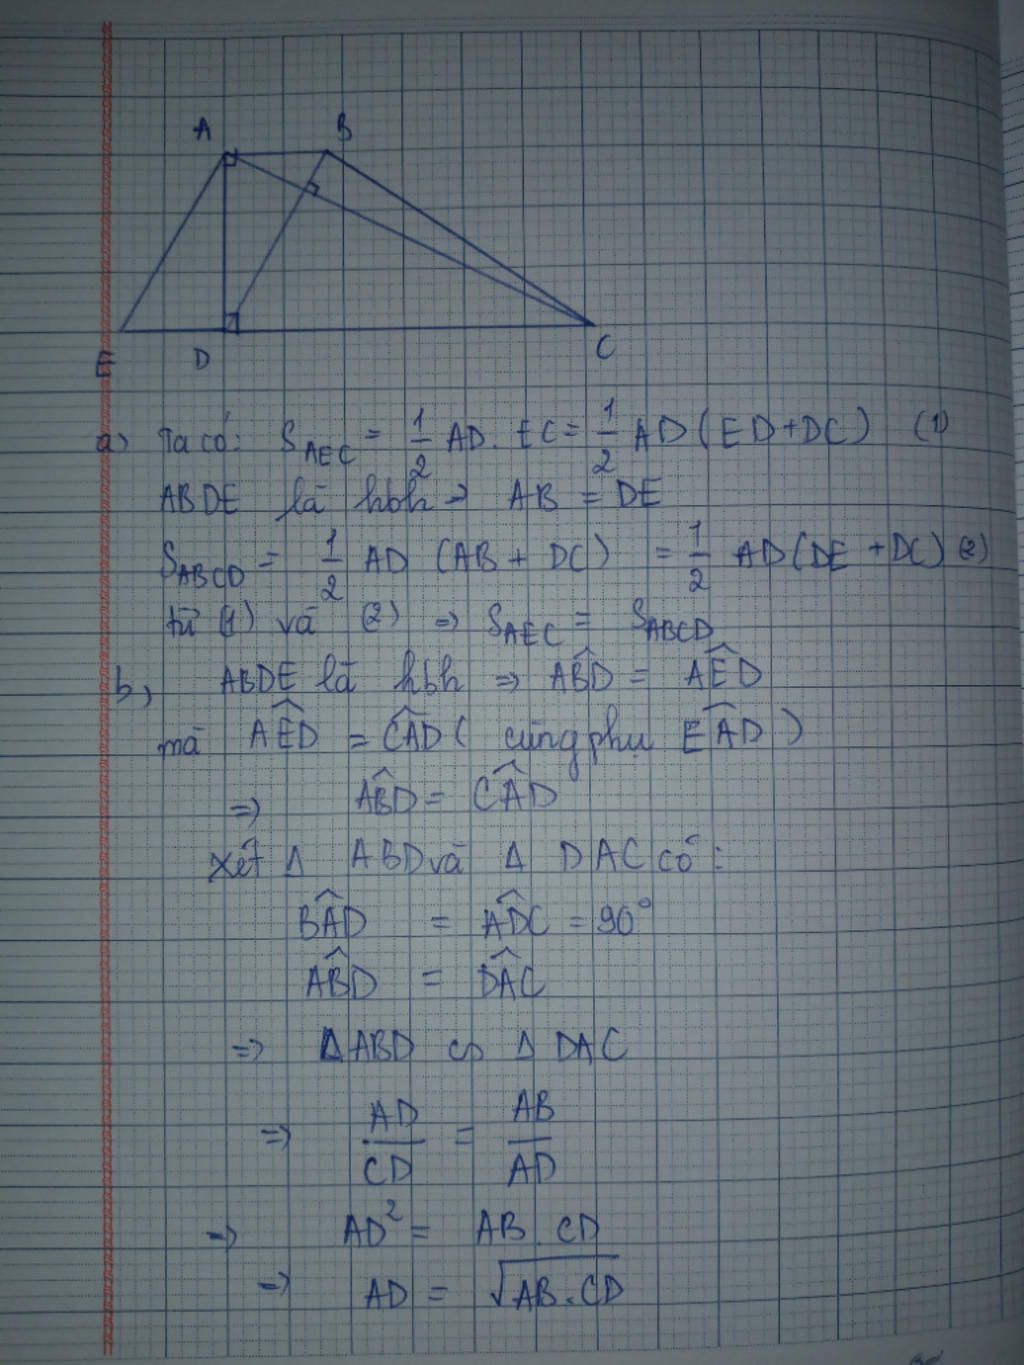 A B
E D C
a) Ta có: S_AEC = 1/2 AD. EC = 1/2 AD (ED+DC) (1)
ABDE là hbh → AB = DE
S_ABCD = 1/2 AD (AB + DC) = 1/2 AD (DE + DC) (2)
từ (1) và (2) ⇒ S_AEC = S_ABCD
b, ABDE là hbh ⇒ ABD̂ = AÊD
mà AÊD = CÂD ( cùng phụ EÂD )
⇒ AB̂D = CÂD
Xét Δ ABD và Δ DAC có:
BÂD = AD̂C = 90°
AB̂D = DÂC
⇒ ΔABD ∽ Δ DAC
⇒ AD/CD = AB/AD
⇒ AD² = AB . CD
⇒ AD = √AB.CD